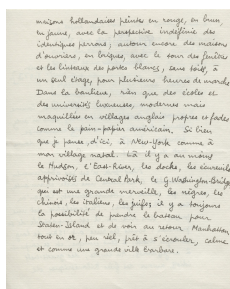 maisons hollandaises peintes en rouge, en brun,
en jaune, avec la perspective indéfinie des
identiques perrons; autour encore des maisons
d'ouvriers, en briques, avec le soin des fenêtres
et les linteaux de portes blancs, sans toits, à
un seul étage, pour plusieurs heures de marche.
Dans la banlieue, rien que des écoles et
des universités luxueuses, modernes mais
maquillées en villages anglais propres et fades
comme le pain-papier américain. Si bien
que je pense, d'ici, à New-York comme à
mon village natal. Là il y a au moins
le Hudson, l'East-River, les docks, les écureuils
apprivoisés de Central Park, le G. Washington Bridge
qui est une grande merveille, les nègres, les
chinois, les italiens, les juifs; il y a toujours
la possibilité de prendre le bateau pour
Staten-Island et de voir au retour Manhattan
tout en or, peu réel, prêt à s'écrouler, calme
et comme une grande ville barbare.